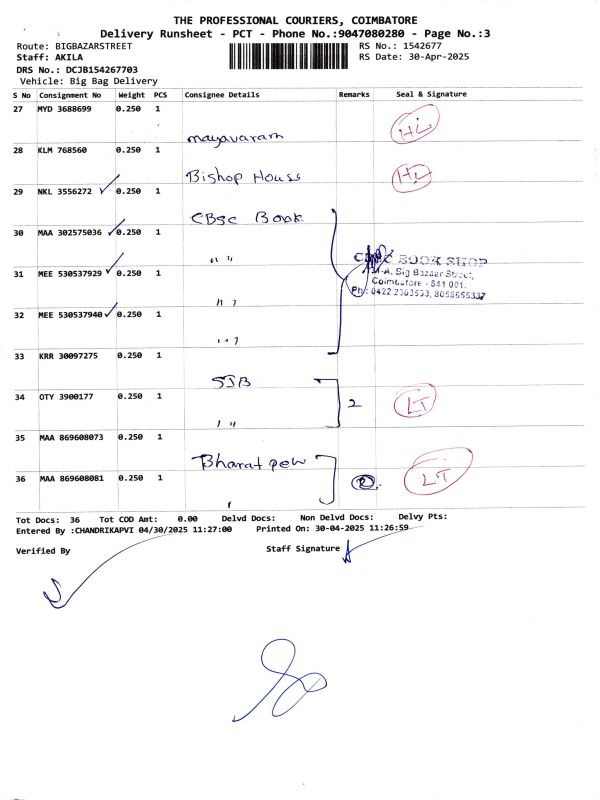 THE PROFESSIONAL COURIERS, COIMBATORE
Delivery Runsheet - PCT - Phone No.:9047080280 - Page No.:3
Route: BIGBAZARSTREET
RS No.: 1542677
Staff: AKILA
RS Date: 30-Apr-2025
DRS No.: DCJB154267703
Vehicle: Big Bag Delivery
S No Consignment No Weight PCS Consignee Details Remarks Seal & Signature
27 MYD 3688699 0.250 1
mayavaram
28 KLM 768560 0.250 1
Bishop House
29 NKL 3556272 0.250 1
CBSC Book
30 MAA 302575036 0.250 1
" "
BOOK SHOP
31 MEE 530537929 0.250 1
Big Bazaar Street,
Coimbatore - 641 001.
Ph: 0422
32 MEE 530537940 0.250 1
33 KRR 30097275 0.250 1
SIB
34 OTY 3900177 0.250 1
2
LT
35 MAA 869608073 0.250 1
Bharat
36 MAA 869608081 0.250 1
2
LT
Tot Docs: 36 Tot COD Amt: 0.00 Delvd Docs: Non Delvd Docs: Delvy Pts:
Entered By :CHANDRIKAPVI 04/30/2025 11:27:00 Printed On: 30-04-2025 11:26:59
Verified By
Staff Signature